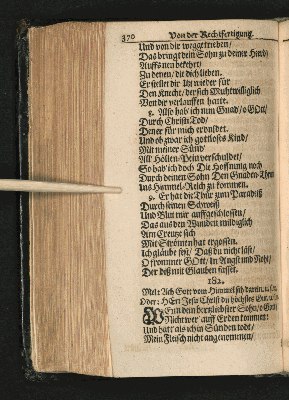 370 Von der Rechtfertigung.
Und von dir weggetrieben/
Das bringt dein Sohn zu deiner Heerd/
Auffs neu bekehrt/
Zu denen/ die dich lieben.
Er stellet dir itzt wieder für
Den Knecht/ der sich Muhtwilliglich
Von dir verlauffen hatte.
8. Also hab ich nun Gnad/ o GOtt/
Durch Christi Tod/
Dener für mich erduldet.
Und ob zwar ich gottloses Kind/
Mit meiner Sünd/
All' Höllen-Pein verschuldet/
So hab' ich doch Die Hoffnung noch
Durch deinen Sohn Den Gnaden-Thron
Ins Himmel-Reich zu kommen.
9. Er hat die Thür zum Paradiß
Durch seinen Schweiß
Und Blut mir auffgeschlossen/
Das aus den Wunden mildiglich
Am Creutze sich
Mit Strömen hat ergossen.
Ich gläube fest/ Daß du nicht läst/
O frommer GOtt/ In Angst und Noht/
Der diß mit Glauben fasset.
182.
Mel: Ach Gott vom Himmel sieh darein
Oder: HErr Jesu Christ du höchstes Gut
WEnn dein hertzliebster Sohn/ o Gott
Nicht wer' auff Erden kommen/
Und hätt' als ich in Sünden todt/
Mein Fleisch nicht angenommen/